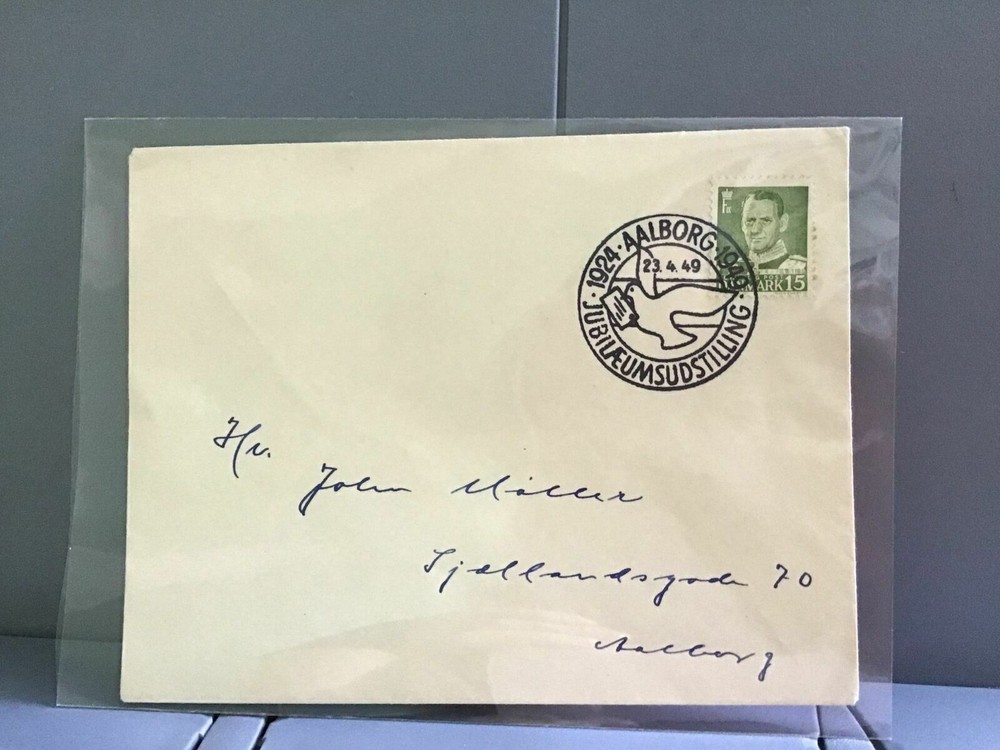 1924 · AALBORG · 1949
23.4.49
· JUBILÆUMSUDSTILLING ·
DANMARK 15
Hr.
John Møller
Sjællandsgade 70
Aalborg